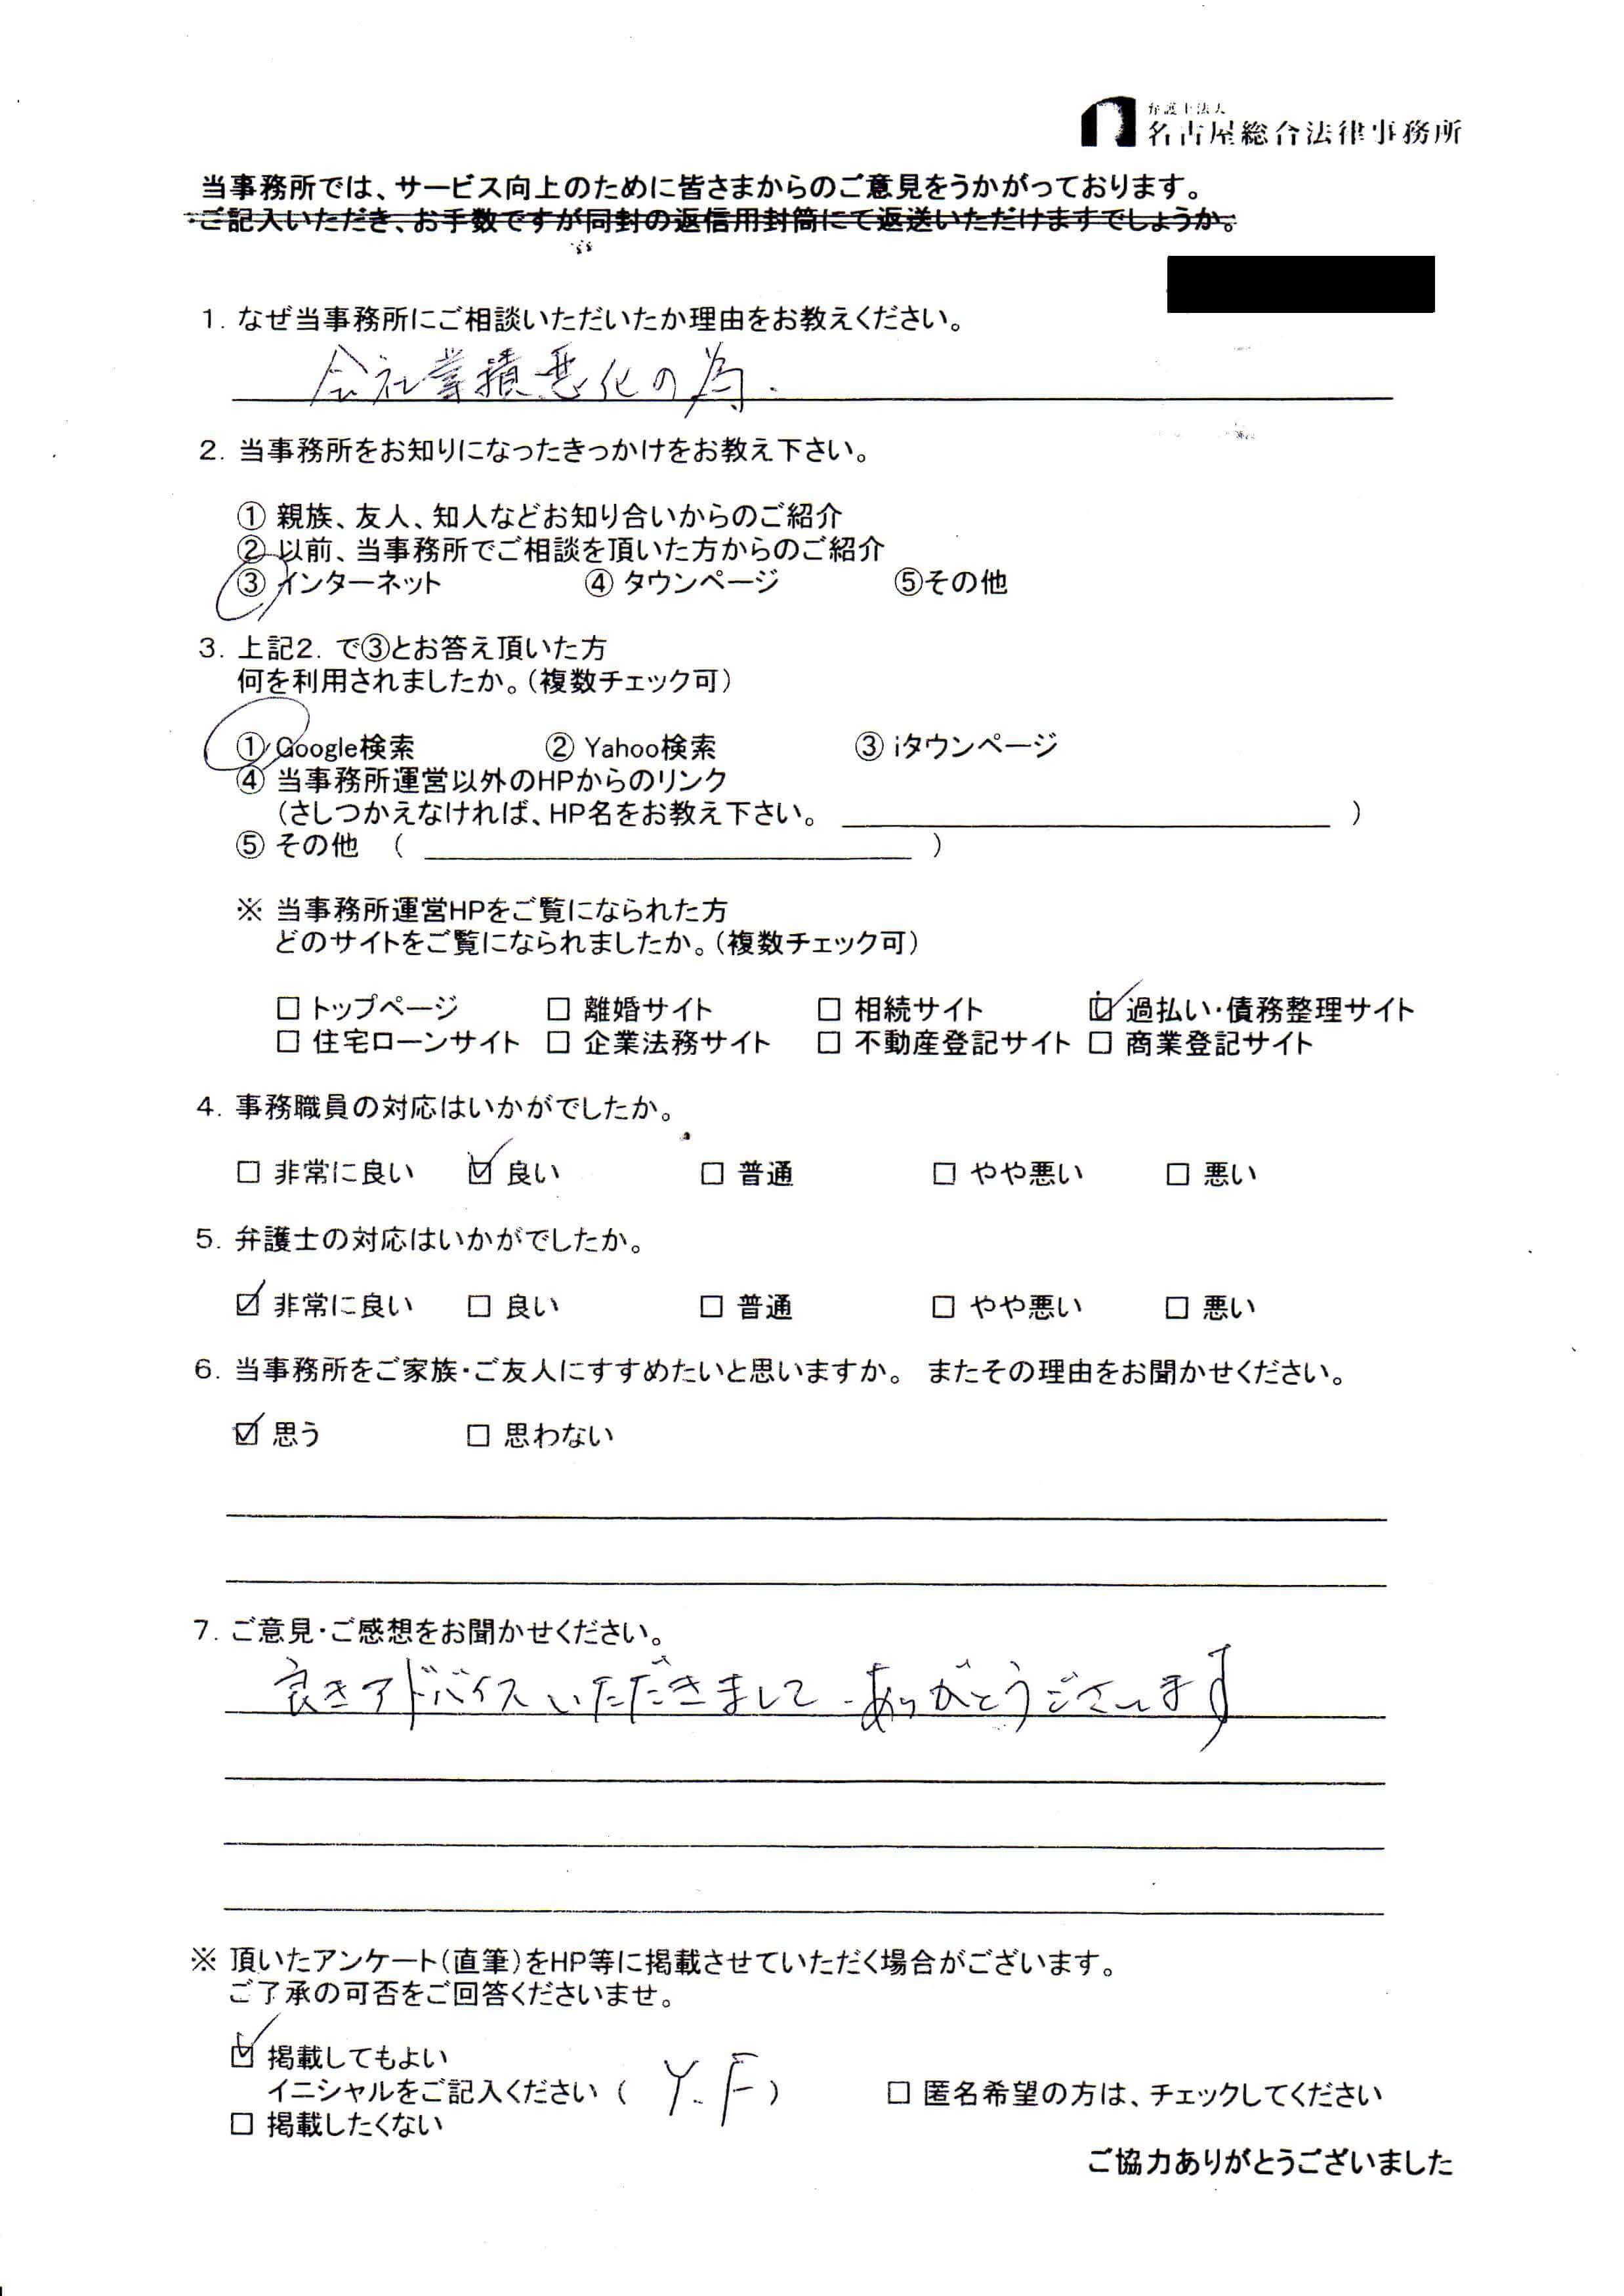 弁護士法人
名古屋総合法律事務所
当事務所では、サービス向上のために皆さまからのご意見をうかがっております。
ご記入いただき、お手数ですが同封の返信用封筒にて返送いただけますでしょうか。
1. なぜ当事務所にご相談いただいたか理由をお教えください。
会社業績悪化の為.
2. 当事務所をお知りになったきっかけをお教え下さい。
① 親族、友人、知人などお知り合いからのご紹介
② 以前、当事務所でご相談を頂いた方からのご紹介
③ インターネット ④ タウンページ ⑤その他
3. 上記2. で③とお答え頂いた方
何を利用されましたか。(複数チェック可)
① Google検索 ② Yahoo検索 ③ iタウンページ
④ 当事務所運営以外のHPからのリンク
(さしつかえなければ、HP名をお教え下さい。 )
⑤ その他 ( )
※ 当事務所運営HPをご覧になられた方
どのサイトをご覧になられましたか。(複数チェック可)
□ トップページ □ 離婚サイト □ 相続サイト ☑ 過払い・債務整理サイト
□ 住宅ローンサイト □ 企業法務サイト □ 不動産登記サイト □ 商業登記サイト
4. 事務職員の対応はいかがでしたか。
□ 非常に良い ☑ 良い □ 普通 □ やや悪い □ 悪い
5. 弁護士の対応はいかがでしたか。
☑ 非常に良い □ 良い □ 普通 □ やや悪い □ 悪い
6. 当事務所をご家族・ご友人にすすめたいと思いますか。 またその理由をお聞かせください。
☑ 思う □ 思わない
7. ご意見・ご感想をお聞かせください。
良きアドバイスいただきまして.ありがとうございます
※ 頂いたアンケート(直筆)をHP等に掲載させていただく場合がございます。
ご了承の可否をご回答くださいませ。
☑ 掲載してもよい
イニシャルをご記入ください ( Y.F ) □ 匿名希望の方は、チェックしてください
□ 掲載したくない
ご協力ありがとうございました